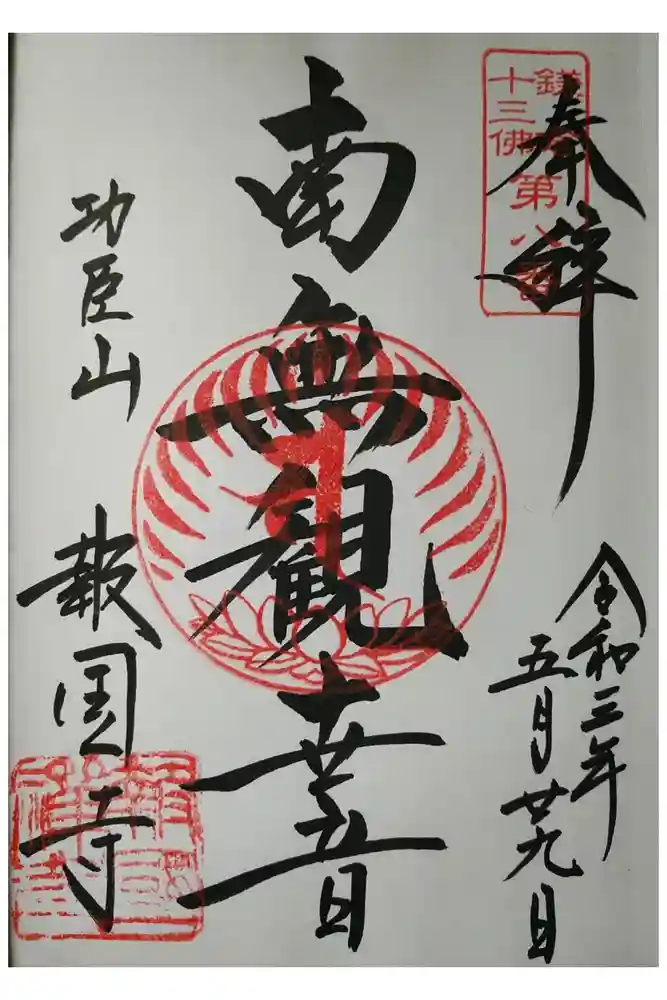 鎌倉
十三佛
第八番
奉拝
令和三年
五月廿九日
南無観世音
功臣山
報国寺